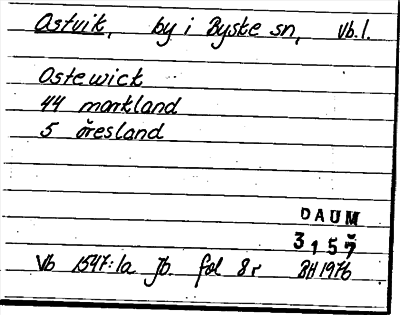 Ostvik, by i Byske sn, Vb.l.
Ostewick
44 markland
5 öresland
DAUM
3157
Vb 1547:1a Jb. fol 8r BH 1976